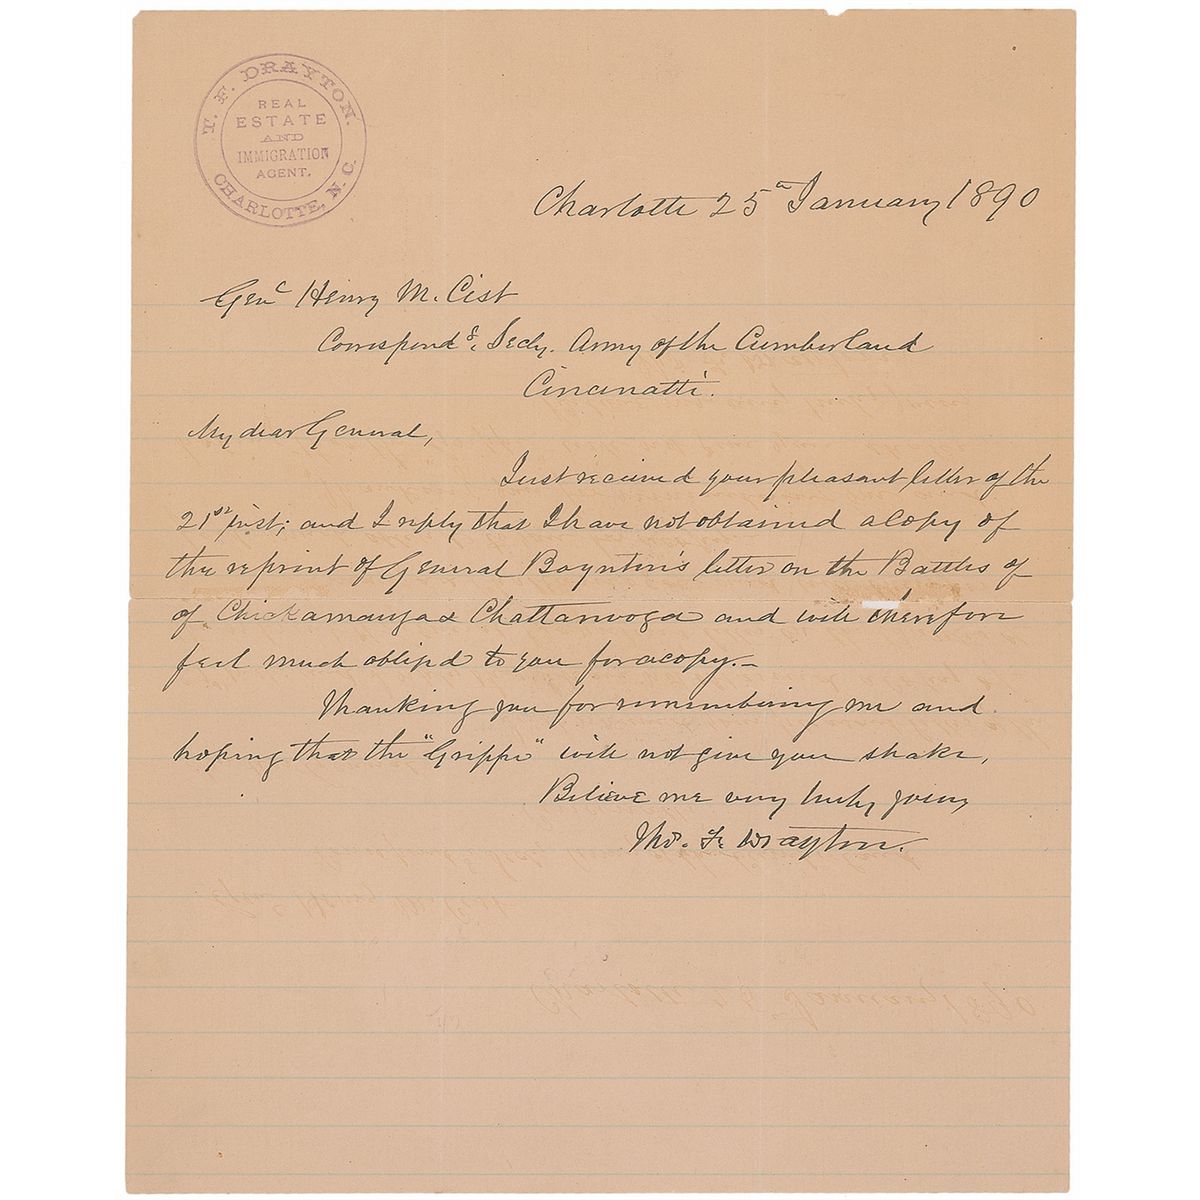 T. F. DRAYTON.
REAL
ESTATE
AND
IMMIGRATION
AGENT.
CHARLOTTE, N. C.
Charlotte 25th January 1890
Genl Henry M. Cist
Correspondg. Secty. Army of the Cumberland
Cincinatti.
My dear General,
Just received your pleasant letter of the
21st inst; and I reply that I have not obtained a copy of
the reprint of General Boynton's letter on the Battles of
of Chickamauga & Chattanooga and will therefore
feel much obliged to you for a copy.—
Thanking you for remembering me and
hoping that the "Grippe" will not give you shake,
Believe me very truly yours,
Tho. F. Drayton.